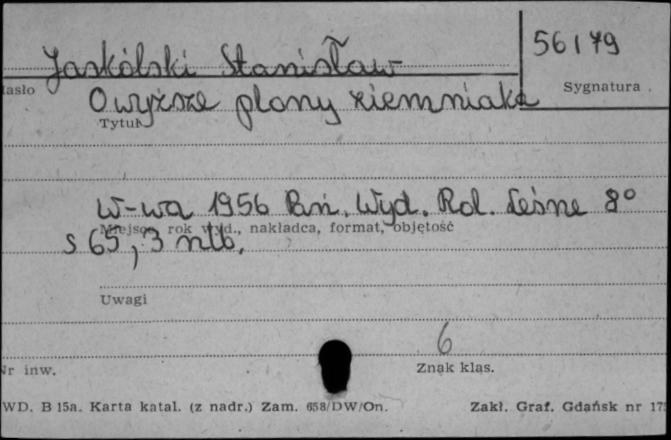 56179
Jaskólski Stanisław
Hasło
Sygnatura
O wyższe plony ziemniaka
Tytuł
W-wa 1956 Pań. Wyd. Rol. Leśne 8°
Miejsce, rok wyd., nakładca, format, objętość
s 65, 3 nlb.
Uwagi
6
Nr inw.
Znak klas.
WD. B 15a. Karta katal. (z nadr.) Zam. 658/DW/On.
Zakł. Graf. Gdańsk nr 17